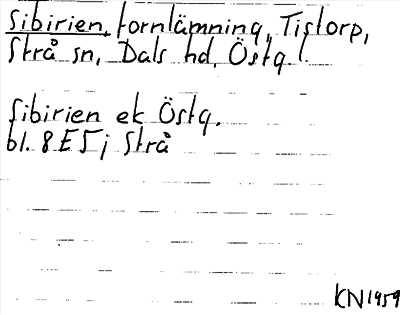 Sibirien, fornlämning, Tistorp,
Strå sn, Dals hd, Östg.
Sibirien ek Östg.
bl. 8E5j Strå
KN 1959